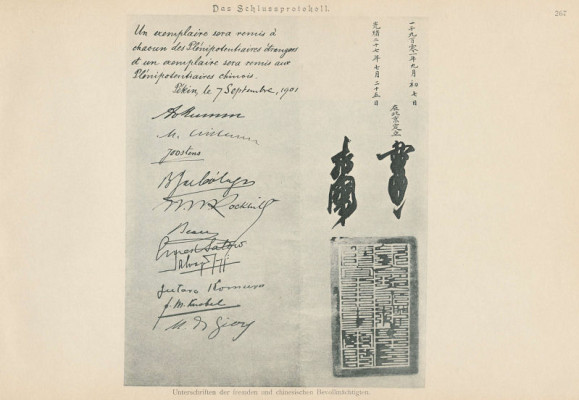 Das Schlussprotokoll.
267
Un exemplaire sera remis à
chacun des Plénipotentiaires étrangers
et un exemplaire sera remis aux
Plénipotentiaires chinois.
Pékin, le 7 Septembre, 1901
Joostens
W. W. Rockhill
Beau
Ernest Satow
Salvago Raggi
Jutaro Komura
F. M. Knobel
M. de Giers
一千九百零一年九月初七日
在北京定立
光緒二十七年七月二十五日
Unterschriften der fremden und chinesischen Bevollmächtigten.